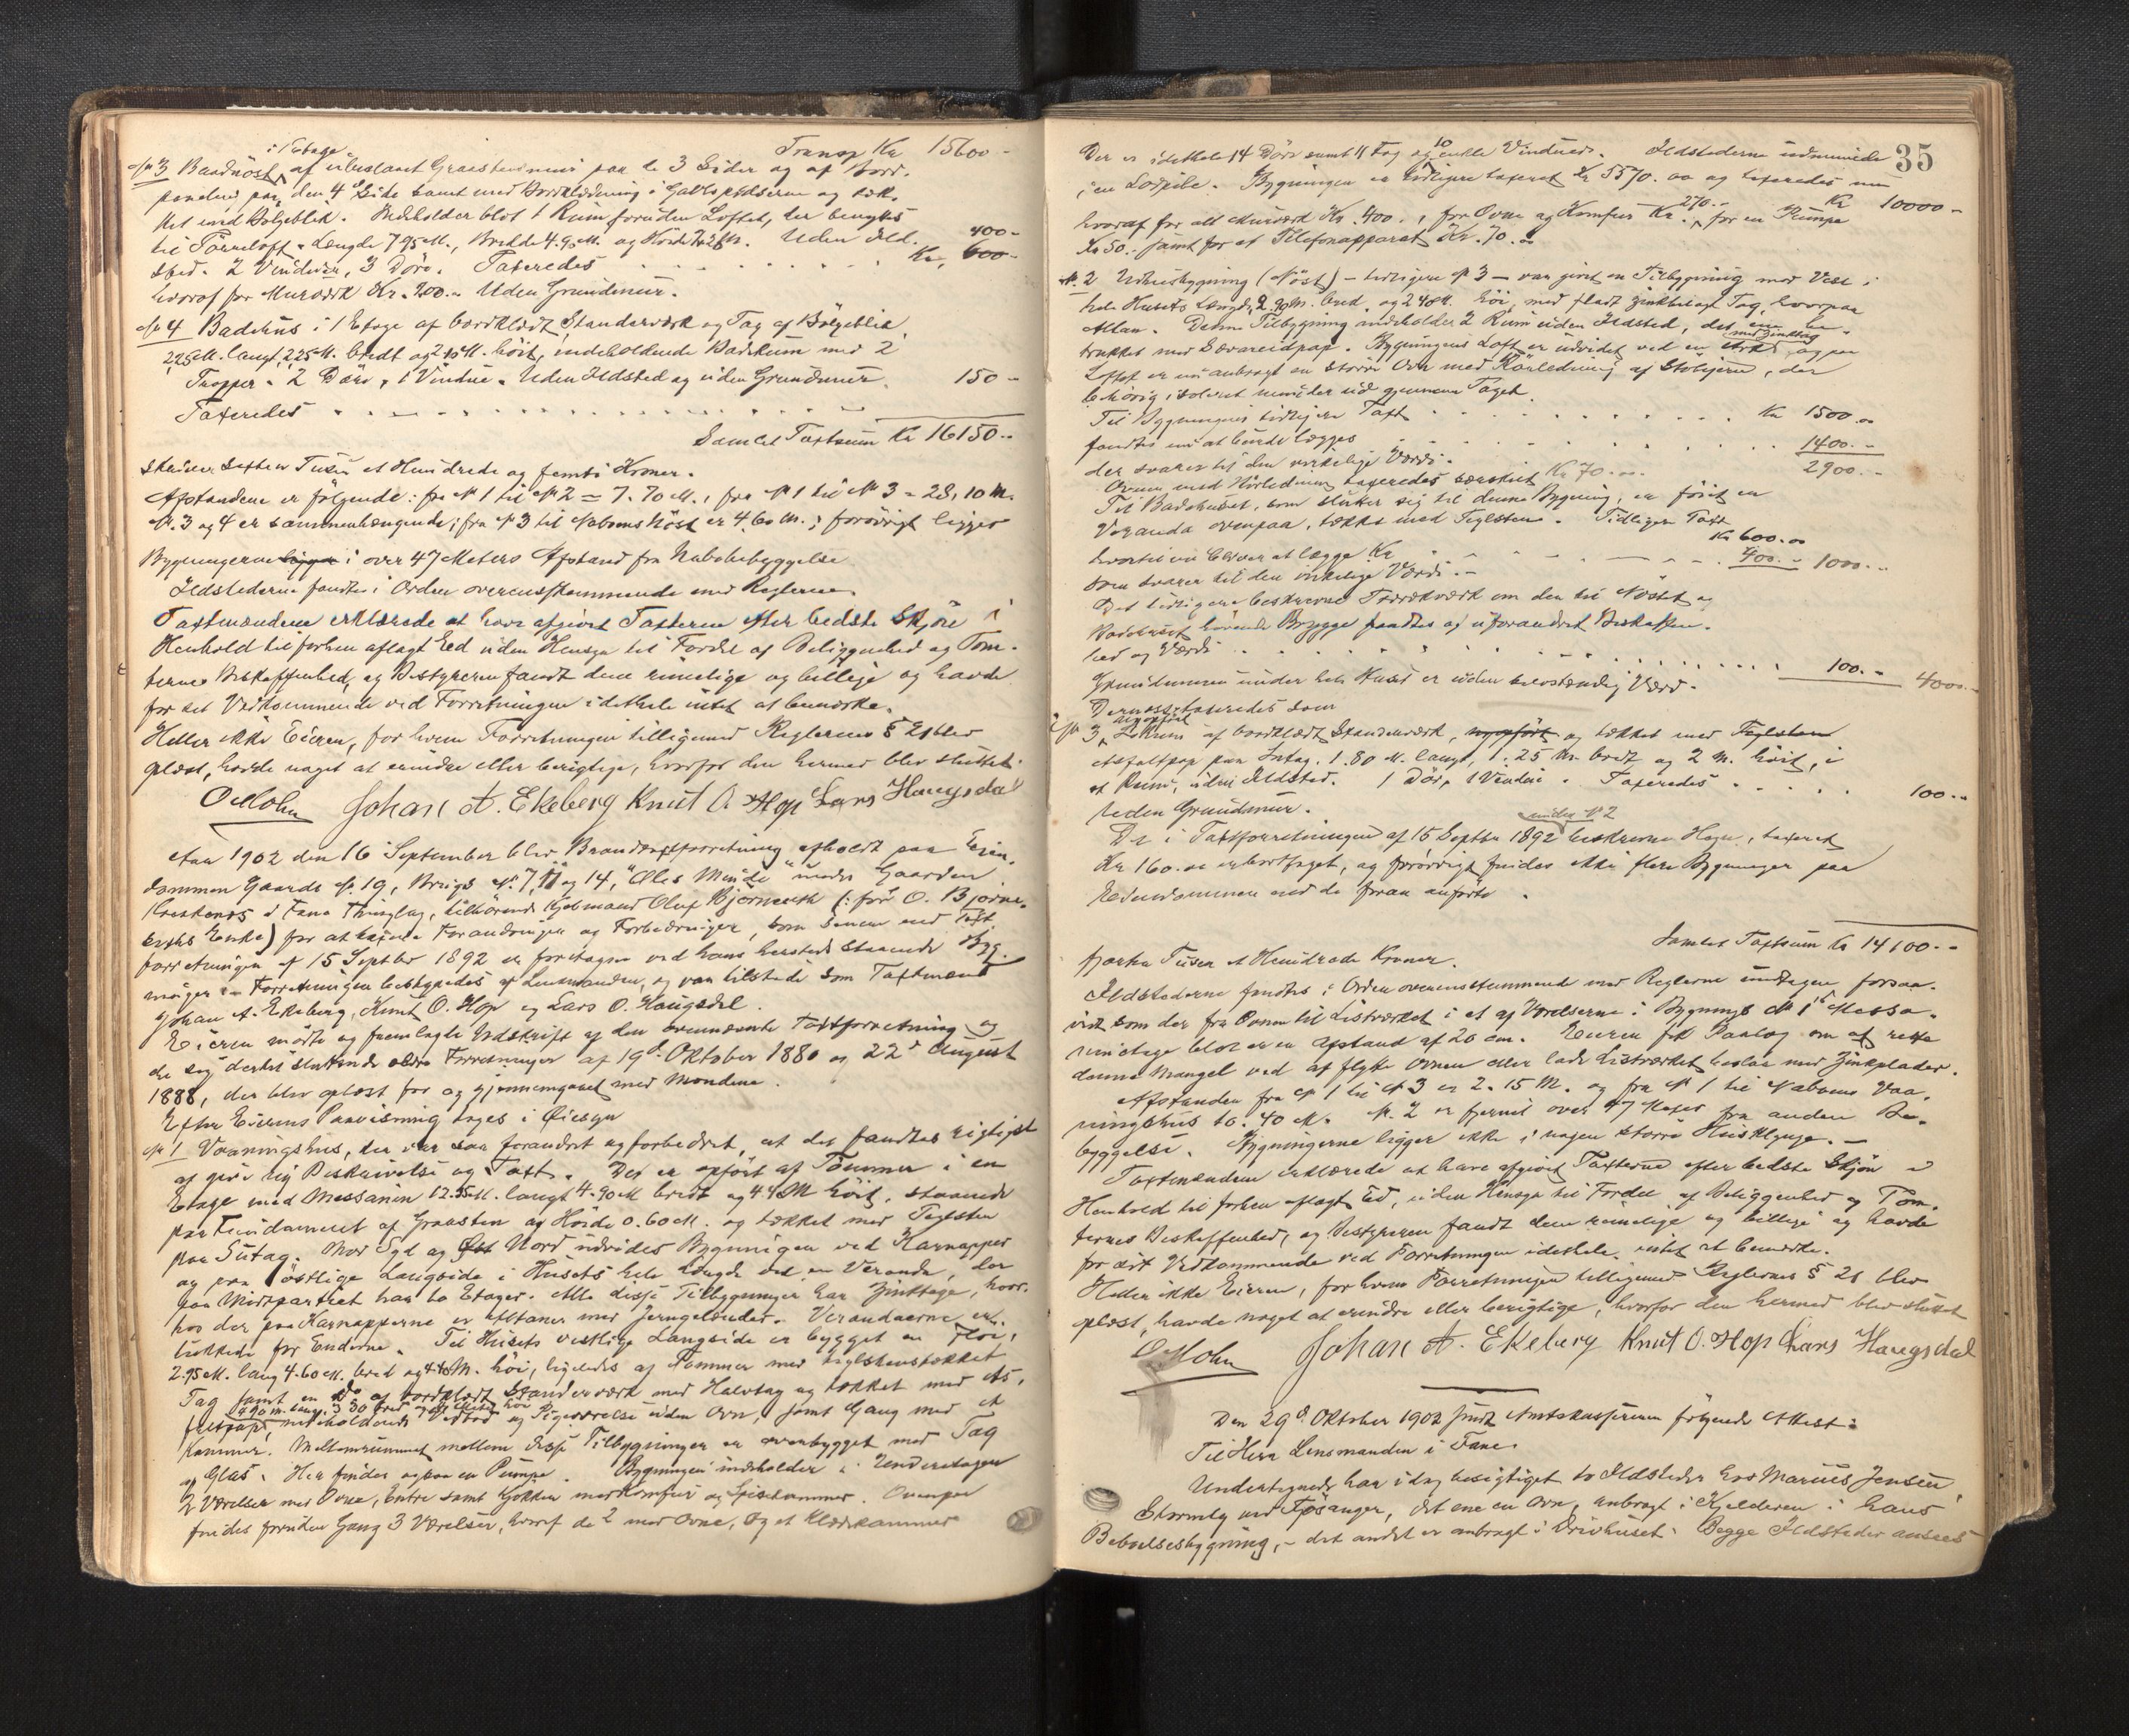 i 1 Etage
Transp Kr 15600 -
№ 3 Baadnøst af ubeslaaet Graastensmur paa de 3 Sider og af Bord-
paneler paa den 4de Side samt med Bordklædning i Gavlspidserne og tæk-
ket med Bølgeblik. Indeholder blot 1 Rum foruden Loftet, der benyttes
til Tørreloft. Længde 7.95 M., Bredde 4.90 M. og Høide M. Uden Ild-
sted. 2 Vinduer, 3 Døre. Taxeredes Kr. 600 - 400 -
hvoraf for Murværk Kr. 200.- Uden Grundmur.
№ 4 Badehus i 1 Etage af bordklædt Standerværk og Tag af Bølgeblik,
2,25 M. langt, 2,25 M. bredt og 2.10 M. høit, indeholdende Baderum med 2
Trapper. 2 Døre, 1 Vindue. Uden Ildsted og uden Grundmur.
Taxeredes 150 -
Samlet Taxtsum Kr 16150 --
skriver Sexten Tusen et Hundrede og femti Kroner.
Afstandene er følgende: fra № 1 til № 2 = 7.70 M., fra № 1 til № 3 = 28,10 M.
№. 3 og 4 er sammenhængende; fra № 3 til Naboens Nøst er 4.60 M.; forøvrigt ligger
Bygningerne ligger i over 47 Meters Afstand fra Nabobebyggelse
Ildstederne fandtes i Orden overensstemmende med Reglerne.
Taxtmændene erklærede at have afgivet Taxterne efter bedste Skjøn i
Henhold til forhen aflagt Eed uden Hensyn til Fordel af Beliggenhed og Tom-
ternes Beskaffenhed, og Bestyreren fandt dem rimelige og billige og havde
for sit Vedkommende ved Forretningen idethele intet at bemærke.
Heller ikke Eieren, for hvem Forretningen tilligemed Reglernes § 21 blev
oplæst, havde noget at erindre eller berigtige, hvorfor den hermed blev sluttet.
OMohn Johan A. Ekeberg Knut O. Hop Lars Haugsdal
Aar 1902 den 16 September blev Brandtaxtforretning afholdt paa Eien-
dommen Gaards №. 19, Brugs №. 7, 11 og 14, "Oles Minde" under Gaarden
i Fana Thinglag, tilhørende Kjøbmand Oluf Bjørneseth (: før O. Bjørne-
seths Enke) for at taxere Forandringer og Forbedringer, som senere end Taxt-
forretningen af 15 Septbr 1892 er foretagne ved hans hersteds staaende Byg-
ninger. Forretningen bestyredes af Lensmanden, og var tilstede som Taxtmænd
Johan A. Ekeberg, Knut O. Hop og Lars O. Haugsdal.
Eieren mødte og fremlagte Udskrift af den ovennævnte Taxtforretning og
de sig dertil sluttende ældre Forretninger af 19de Oktober 1880 og 22de August
1888, der blev oplæst for og gjennemgaaet med Mændene.
Efter Eierens Paavisning toges i Øiesyn
№ 1 Vaaningshus, der var saa forandret og forbedret, at det fandtes rigtigst
at give ny Beskrivelse og Taxt. Det er opført af Tømmer i en
Etage med Messanin 12.55 M. langt 4.90 M bredt og 4.45 M høit, staaende
paa Fundament af Graasten af Høide 0.60 M. og tækket med Teglsten
paa Sutag. Mod Syd og Øst Nord udvides Bygningen ved Karnapper
og paa østlige Langside i Husets hele Længde ved en Veranda, der
paa Midtpartiet har to Etager. Alle disse Tilbygninger har Zinktage, hvor-
hos der paa Karnapperne er Altaner med Jerngelænder. Verandaerne er
lukkede for Enderne. Til Husets vestlige Langside er bygget en Fløi,
2.95 M. lang 4.60 M. bred og 4.40 M. høi, ligeledes af Tømmer med teglstenstækket
Tag samt en do af bordklædt Standerværk med Halvtag og tækket med As-
4.90 m. lang, 3.30 bred og høi
faltpap, indeholdende Vedbod og Pigeværelse uden Ovn, samt Gang med et
Kammer. Mellemrummet mellem disse Tilbygninger er overbygget med Tag
af Glas. Her findes ogsaa en Pumpe. Bygningen indeholder i Underetagen
2 Værelser med Ovne, Entre samt Kjøkken med Komfur og Spisekammer. Ovenpaa
findes foruden Gang 3 Værelser, hvoraf de 2 med Ovne, og et Klædekammer
35
Der er idethele 14 Døre samt 11 Fag og 10 enkle Vinduer. Ildstederne udmunder
i en Lodpibe. Bygningen er tidligere taxeret Kr 5570.00 og taxeredes nu
Kr 10000 -
hvoraf for alt Murværk Kr. 400., for Ovne og Komfur Kr. 270.-, for en Pumpe
Kr 50.- samt for et Telefonapparat Kr. 70.00
№. 2 Udhusbygning (Nøst) - tidligere № 3 - var givet en Tilbygning mod Vest i
hele Husets Længde, 2.90 M. bred og 2.40 M. høi, med fladt zinktækket Tag, hvorpaa
Altan. Denne Tilbygning indeholder 2 Rum uden Ildsted, det ene be-
trukket med Sævareidpap. Bygningens Loft er udvidet ved en Ark med Zinktag, og paa
Loftet er nu anbragt en større Ovn med Rørledning af Støbejern, der
behørig isoleret munder ud gjennem Taget.
Til Bygningens tidligere Taxt Kr 1500.00
fandtes nu at burde lægges 1400.--
der svarer til den virkelige Værdi. 2900.--
Ovnen med Rørledning taxeredes særskilt Kr 70.--
Til Badehuset, som slutter sig til denne Bygning, er føiet en
Veranda ovenpaa, tækket med Teglsten. Tidligere Taxt
Kr 600.00
hvortil nu bliver at lægge Kr 400.-- 1000.--
som svarer til den virkelige Værdi.-
Det tidligere beskrevne Træværk om den til Nøstet og
Badehuset hørende Brygge fandtes af uforandret Beskaffen-
hed og Værdi 100.-- 4000.--
Grundmuren under hele Huset er uden selvstændig Værd.
Dernæst taxeredes som
№ 3, nyopført Lokum af bordklædt Standerværk, nyopført og tækket med Teglsten
Asfaltpap paa Sutag. 1.80 M. langt, 1.25 M. bredt og 2 M. høit, i
et Rum, uden Ildsted. 1 Dør, 1 Vindue. Taxeredes 100.--
Uden Grundmur.
under № 2
De i Taxtforretningen af 15 Septbr 1892 beskrevne , taxeret
Kr 160.00 er borttaget, og forøvrigt findes ikke flere Bygninger paa
Eiendommen end de foran anførte.
Samlet Taxtsum Kr 14100.--
fjorten Tusen et Hundrede Kroner.
Ildstederne fandtes i Orden overensstemmende med Reglerne undtagen forsaa-
vidt som der fra Ovnen til Listværket i et af Værelserne i Bygnings № 1s Messa-
ninetage blot er en Afstand af 20 cm. Eieren fik Paalæg om at rette
denne Mangel ved at flytte Ovnen eller lade Listværket beslaa med Zinkplader.
Afstanden fra № 1 til № 3 er 2.15 M. og fra № 1 til Naboens Vaa-
ningshus 10.40 M. №. 2 er fjernet over 47 Meter fra anden Be-
byggelse. Bygningerne ligger ikke i nogen større Husklynge.-
Taxtmændene erklærede at have afgivet Taxterne efter bedste Skjøn i
Henhold til forhen aflagt Ed, uden Hensyn til Fordel af Beliggenhed og Tom-
ternes Beskaffenhed, og Bestyreren fandt dem rimelige og billige og havde
for sit Vedkommende ved Forretningen idethele intet at bemærke.
Heller ikke Eieren, for hvem Forretningen tilligemed Reglernes § 21 blev
oplæst, havde noget at erindre eller berigtige, hvorfor den hermed blev sluttet
OMohn Johan A. Ekeberg Knut O. Hop Lars Haugsdal
Den 29de Oktober 1902 fandt Amtskassereren følgende Attest:
Til Herr Lensmanden i Fane.
Undertegnede har idag besigtiget to Ildsteder hos Marius Jensen,
Stormly ved Fjøsanger, det ene en Ovn, anbragt i Kjelderen i hans
Beboelsesbygning, - det andet er anbragt i Drivhuset. Begge Ildsteder ansees